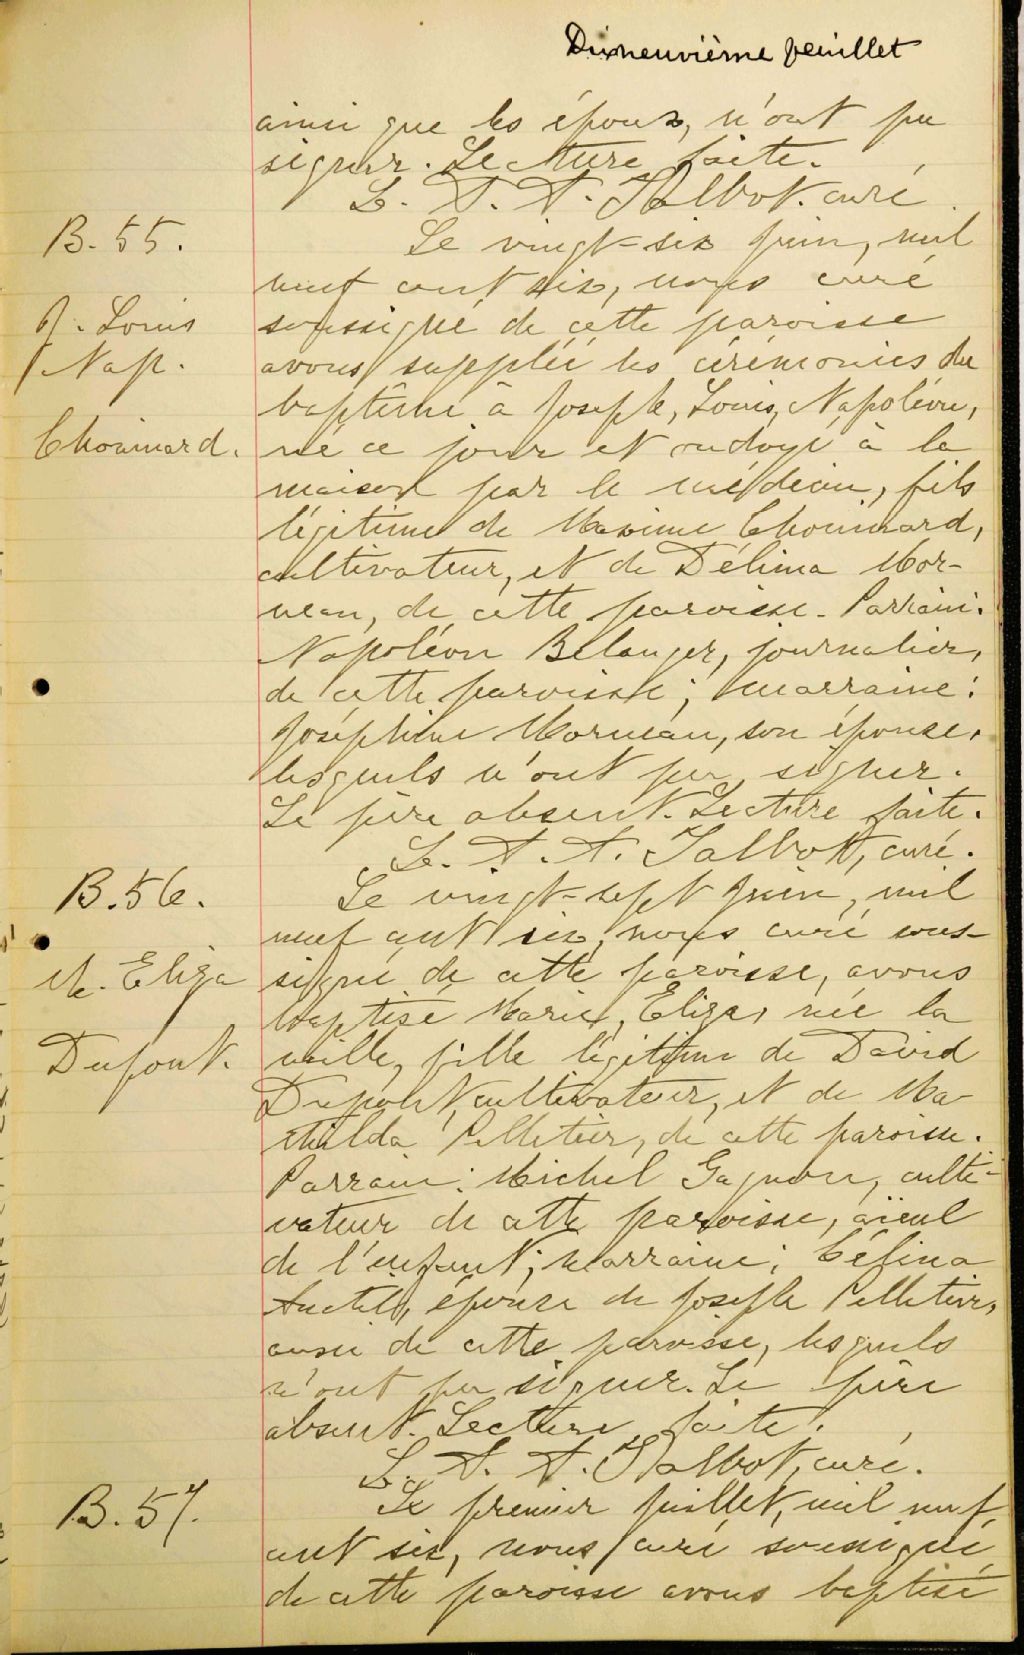 Dixneuvième feuillet
ainsi que les époux, n'ont pu
signer. Lecture faite.
L. A. A. Talbot. curé.
B. 55.
Le vingt-six juin, mil
neuf cent six, nous curé
J. Louis
soussigné de cette paroisse
Nap.
avons suppléé les cérémonies du
baptême à Joseph, Louis, Napoléon,
Chouinard.
né ce jour et ondoyé à la
maison par le médecin, fils
légitime de Maxime Chouinard,
cultivateur, et de Délima Mor-
neau, de cette paroisse. Parrain:
Napoléon Belanger, journalier,
de cette paroisse; marraine:
Joséphine Morneau, son épouse,
lesquels n'ont pu signer.
Le père absent. Lecture faite.
L. A. A. Talbot, curé.
B. 56.
Le vingt-sept juin, mil
neuf cent six, nous curé sous-
M. Eliza
signé de cette paroisse, avons
baptisé Marie, Eliza, née la
Dupont.
veille, fille légitime de David
Dupont, cultivateur, et de Ma-
thilda Pelletier, de cette paroisse.
Parrain: Michel Gagnon, culti-
vateur de cette paroisse, aïeul
de l'enfant; marraine: Célina
Anctil, épouse de Joseph Pelletier,
aussi de cette paroisse, lesquels
n'ont pu signer. Le père
absent. Lecture faite.
L. A. A. Talbot, curé.
B. 57.
Le premier juillet, mil neuf
cent six, nous curé soussigné
de cette paroisse avons baptisé